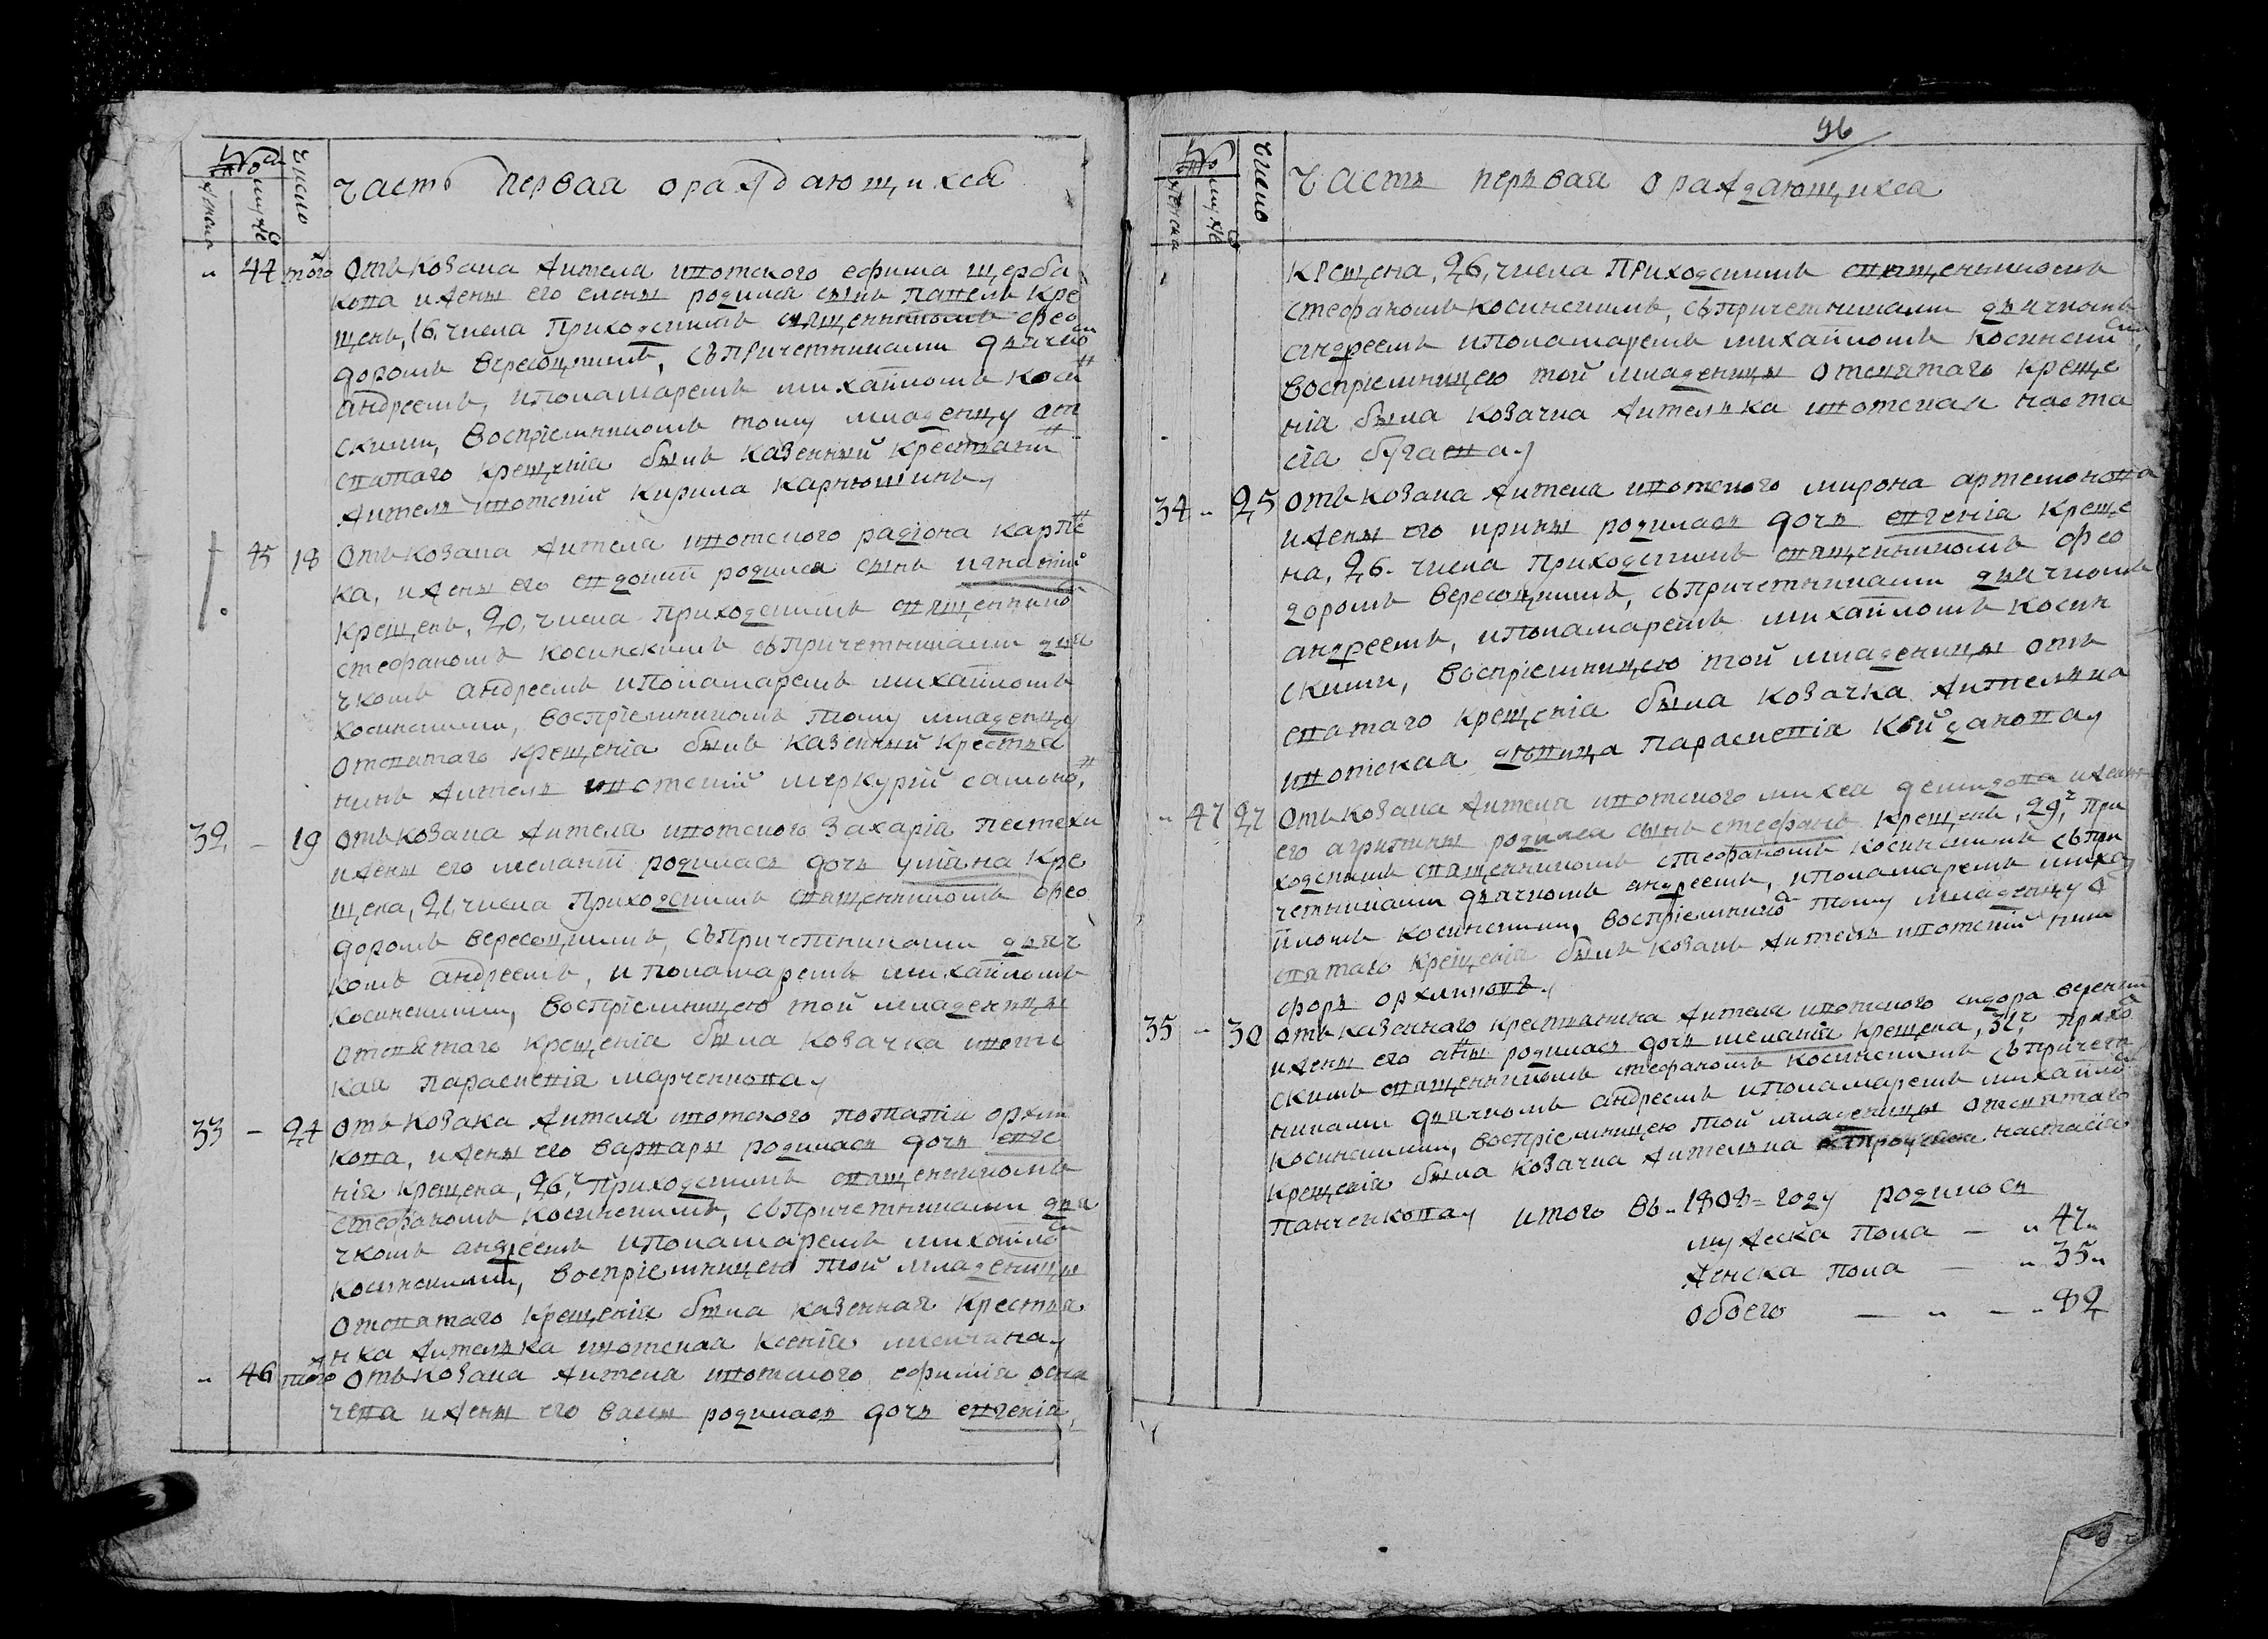 Часть первая о раждающихся
числo
44 того Отъ козака жителя ивотского ефима щерба
кова и жены его елены родился сынъ павелъ кре
щенъ, 16, числа Приходскимъ священникомъ фео
доромъ вересоцкимъ, съ причетниками дьячко
андреемъ, и пономаремъ михайломъ коси
скими, воспріемникомъ тому младенцу от
святаго крещенія былъ казенный крестьяни
житель ивотскій Кирила карнюшинъ
45 18 Отъ козака жителя ивотского радіона карпе
ка, и жены его евдокіи родился сынъ игнатій
крещенъ, 20, числа Приходскимъ священико
стефаномъ косинскимъ съ причетниками дья
чкомъ андреемъ и пономаремъ михайломъ
косинскими, воспріемникомъ тому младенцу
от святаго крещенія былъ казенный крестья
нинъ житель ивотскій меркурій самоно
32 - 19 Отъ козака жителя ивотского захарія пестехи
и жены его меланіи родилась дочь уліана кре
щена, 21, числа Приходскимъ священникомъ фео
доромъ вересоцкимъ, съ причетниками дьяч
комъ андреемъ, и пономаремъ михайломъ
косинскими, воспріемницею той младеницы
от святаго крещенія была козачка ивотс
кая параскевія марченкова
33 - 24 Отъ козака жителя ивотского потапіи орхи
кова, и жены его варвары родилась дочь евге
нія крещена, 26, ч Приходскимъ священникомъ
стефаномъ косинскимъ, съ причетниками дья
чкомъ андреемъ и пономаремъ михайло
косинскими, воспріемницею той младеницы
от святаго крещенія была казенная крестья
нка жителька ивотская ксенія
46 того Отъ козака жителя ивотского ефимія осна
чева и жены его васы родилась дочь евгенія,
96
Часть первая о раждающихся
число
крещена, 26, числа Приходскимъ священникомъ
стефаномъ косинскимъ, съ причетниками дьячкомъ
андреемъ и пономаремъ михайломъ косински
воспріемницею той младеницы от святаго креще
нія была козачка жителька ивотская наста
сія бугаева
34 - 25 Отъ козака жителя ивотского мирона артемонова
и жены его ирины родилась дочь евгенія креще
на, 26. числа Приходскимъ священникомъ фео
доромъ вересоцкимъ, съ причетниками дьячкомъ
андреемъ, и пономаремъ михайломъ косин
скими, воспріемницею той младеницы отъ
святаго крещенія была козачка жителька
ивотская девица параскевія
47 27 Отъ козака жителя ивотского михея демидова и жены
его агрипины родился сынъ стефанъ крещенъ, 29, ч При
ходскимъ священникомъ стефаномъ косинскимъ съ при
четниками дьячкомъ андреемъ, и пономаремъ миха
йломъ косинскими, воспріемнико тому младенцу о
святаго крещенія былъ козакъ житель ивотскій ники
форъ орхликовъ
35 - 30 Отъ казенного крестьянина жителя ивотского сидора
и жены его анны родилась дочь меланія крещена, 31, ч Прихо
скимъ священникомъ стефаномъ косинскимъ съ причетн
никами дьячкомъ андреемъ и пономаремъ михайло
косинскими, воспріемницею той младеницы от святаго
крещенія была козачка жителька настасія
панченкова итого въ 1808 году родилось
мужеска пола — 47
женска пола — 35
обоего — 82